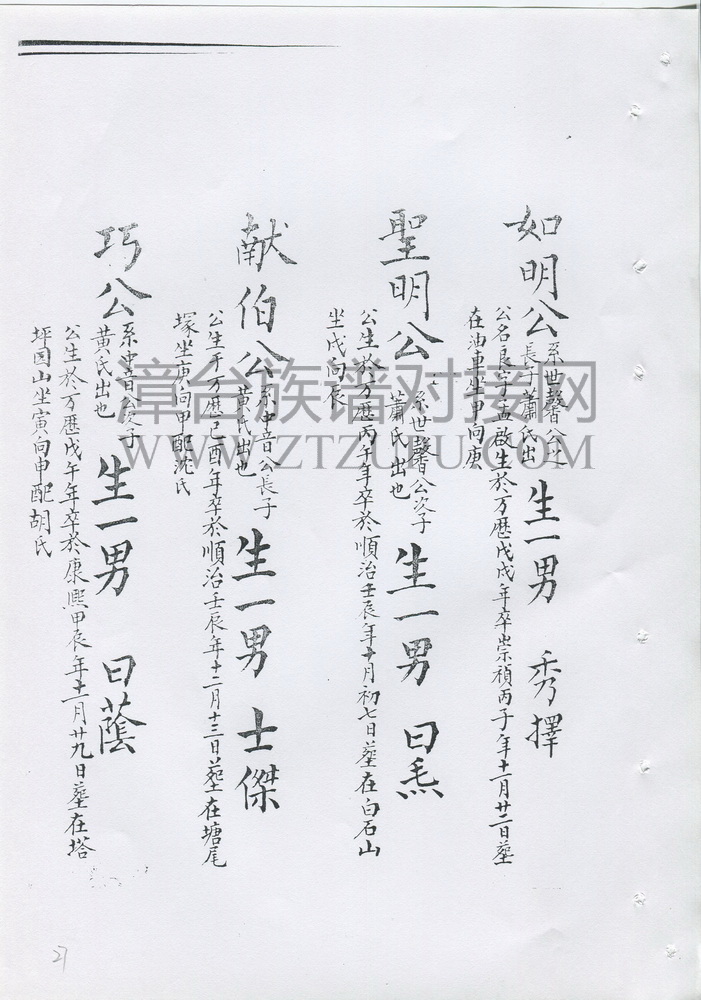 如明公 系世馨公之長子蕭氏出 生一男 秀擇
公名良字孟啟生於万歷戊戌年卒崇禎丙子年十一月廿二日塟
在油車坐甲向庚
聖明公 系世馨公次子蕭氏出也 生一男 曰焏
公生於万歷丙午年卒於順治壬辰年十月初七日塟在白石山
坐戌向辰
献伯公 系中音公長子黃氏出也 生一男 士傑
公生于万歷己酉年卒於順治壬辰年十二月十三日塟在塘尾
塚坐庚向甲配沈氏
巧公 系中音公次子黃氏出也 生一男 曰蔭
公生於万歷戊午年卒於康熙甲辰年十一月廿九日塟在塔
坪园山坐寅向申配胡氏
漳台族谱对接网
WWW.ZTZUPU.COM
27